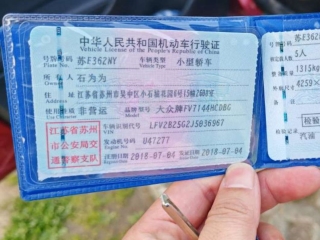 中华人民共和国机动车行驶证
Vehicle License of the People's Republic of China
号牌号码 苏E362NY 车辆类型 小型轿车
Plate No. Vehicle Type
所有人 石为为
Owner
住址
Address
使用性质 非营运 品牌型号 大众牌FV7144HCDBG
江苏省苏州市公安局交通警察支队
车辆识别代号 LFV2B25G2J5036967
发动机号码 047277
Engine No.
注册日期 2018-07-04 发证日期 2018-07-04
号牌号码 苏E362
5人
1315kg
4259×
检验
汽油